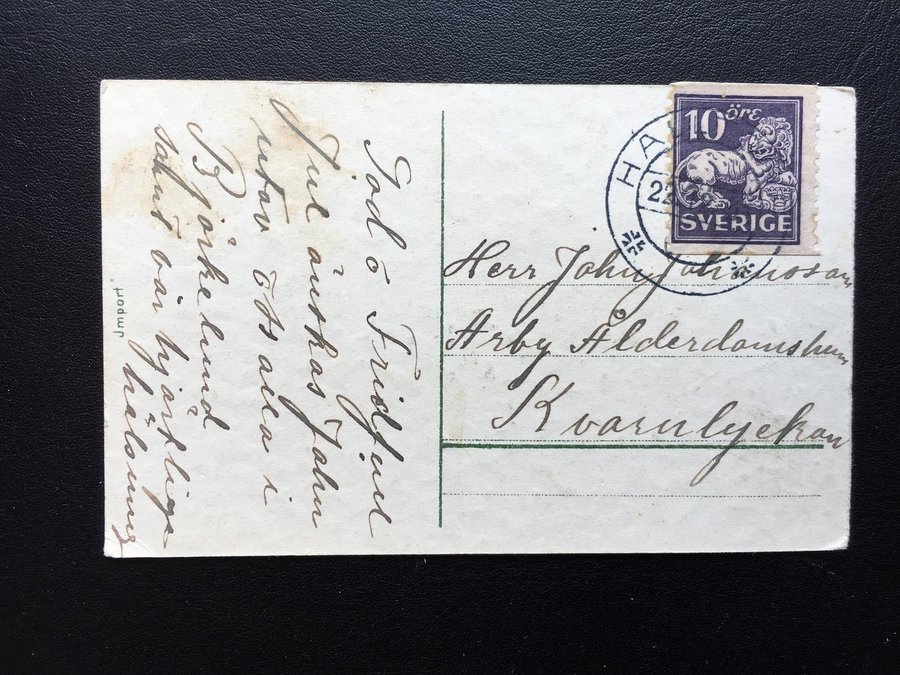 God o Fridfull
Jul önskas John
utav oss alla i
Björkelund
samt vår hjärtliga
hälsning
Import
10 öre
SVERIGE
HA
22
Herr John Johansson
Arby Ålderdomshem
Kvarnlyckan